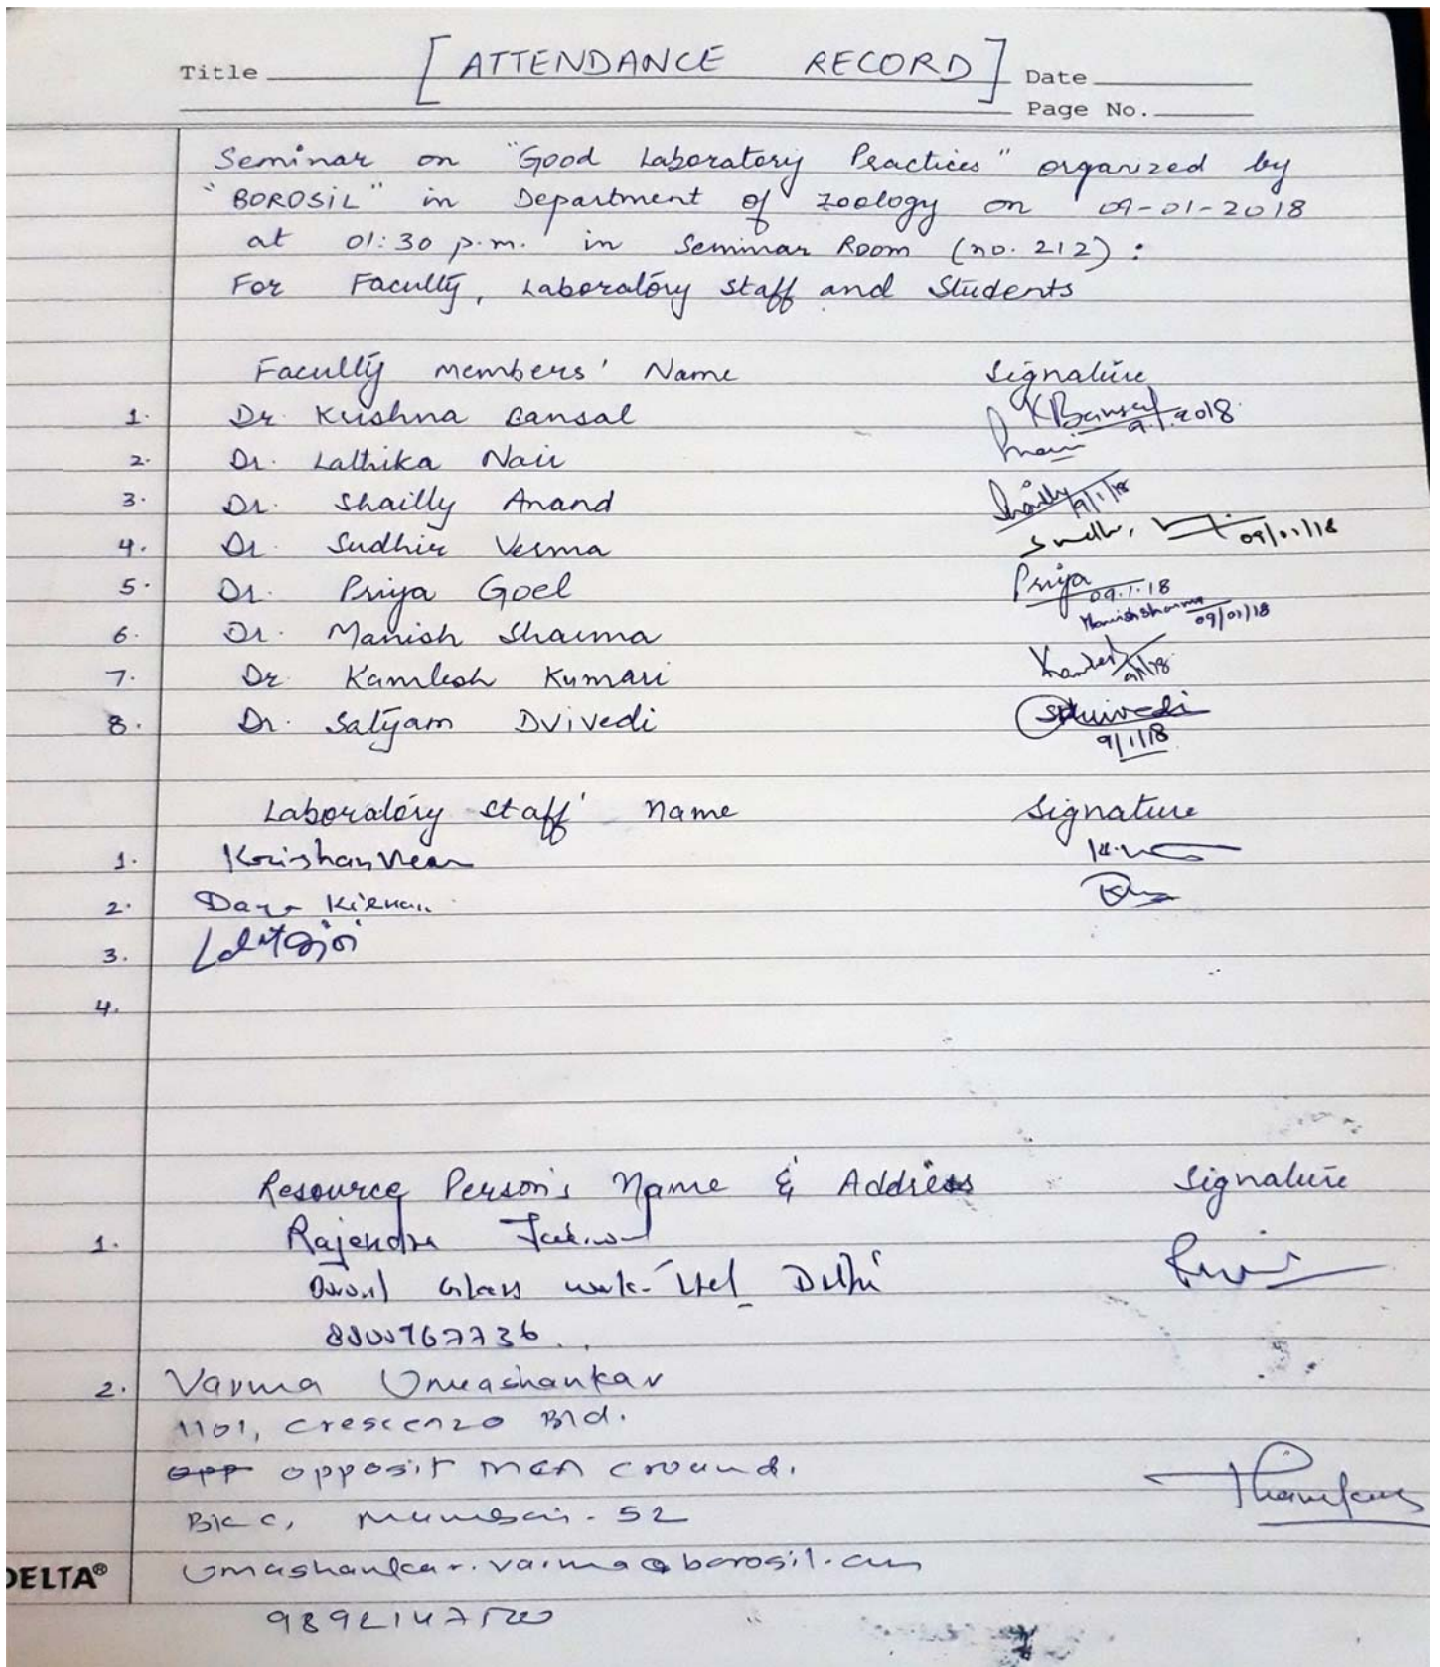 Title [ATTENDANCE RECORD] Date
Page No.
Seminar on "Good Laboratory Practices" organized by
"BOROSIL" in Department of Zoology on 09-01-2018
at 01:30 p.m. in Seminar Room (no. 212) :
For Faculty, Laboratory staff and Students
Faculty members' Name Signature
1. Dr. Krishna Bansal KBansal 9.1.2018
2. Dr. Lathika Nair
3. Dr. Shailly Anand Shailly 9/1/18
4. Dr. Sudhir Verma 09/01/18
5. Dr. Priya Goel Priya 09.1.18
6. Dr. Manish Sharma Manish Sharma 09/01/18
7. Dr. Kamlesh Kumari 9/1/18
8. Dr. Satyam Dvivedi SDwivedi 9/1/18
Laboratory Staff' Name Signature
1. Krishan Veer
2. Daya
3.
4.
Resource Person's Name & Address Signature
1. Rajendra
Glass Delhi
2. Varma Umashankar
1101, Crescenzo Bld.
opp opposit MCA Ground.
BKC, Mumbai - 52
DELTA® umashankar.varma@borosil.com